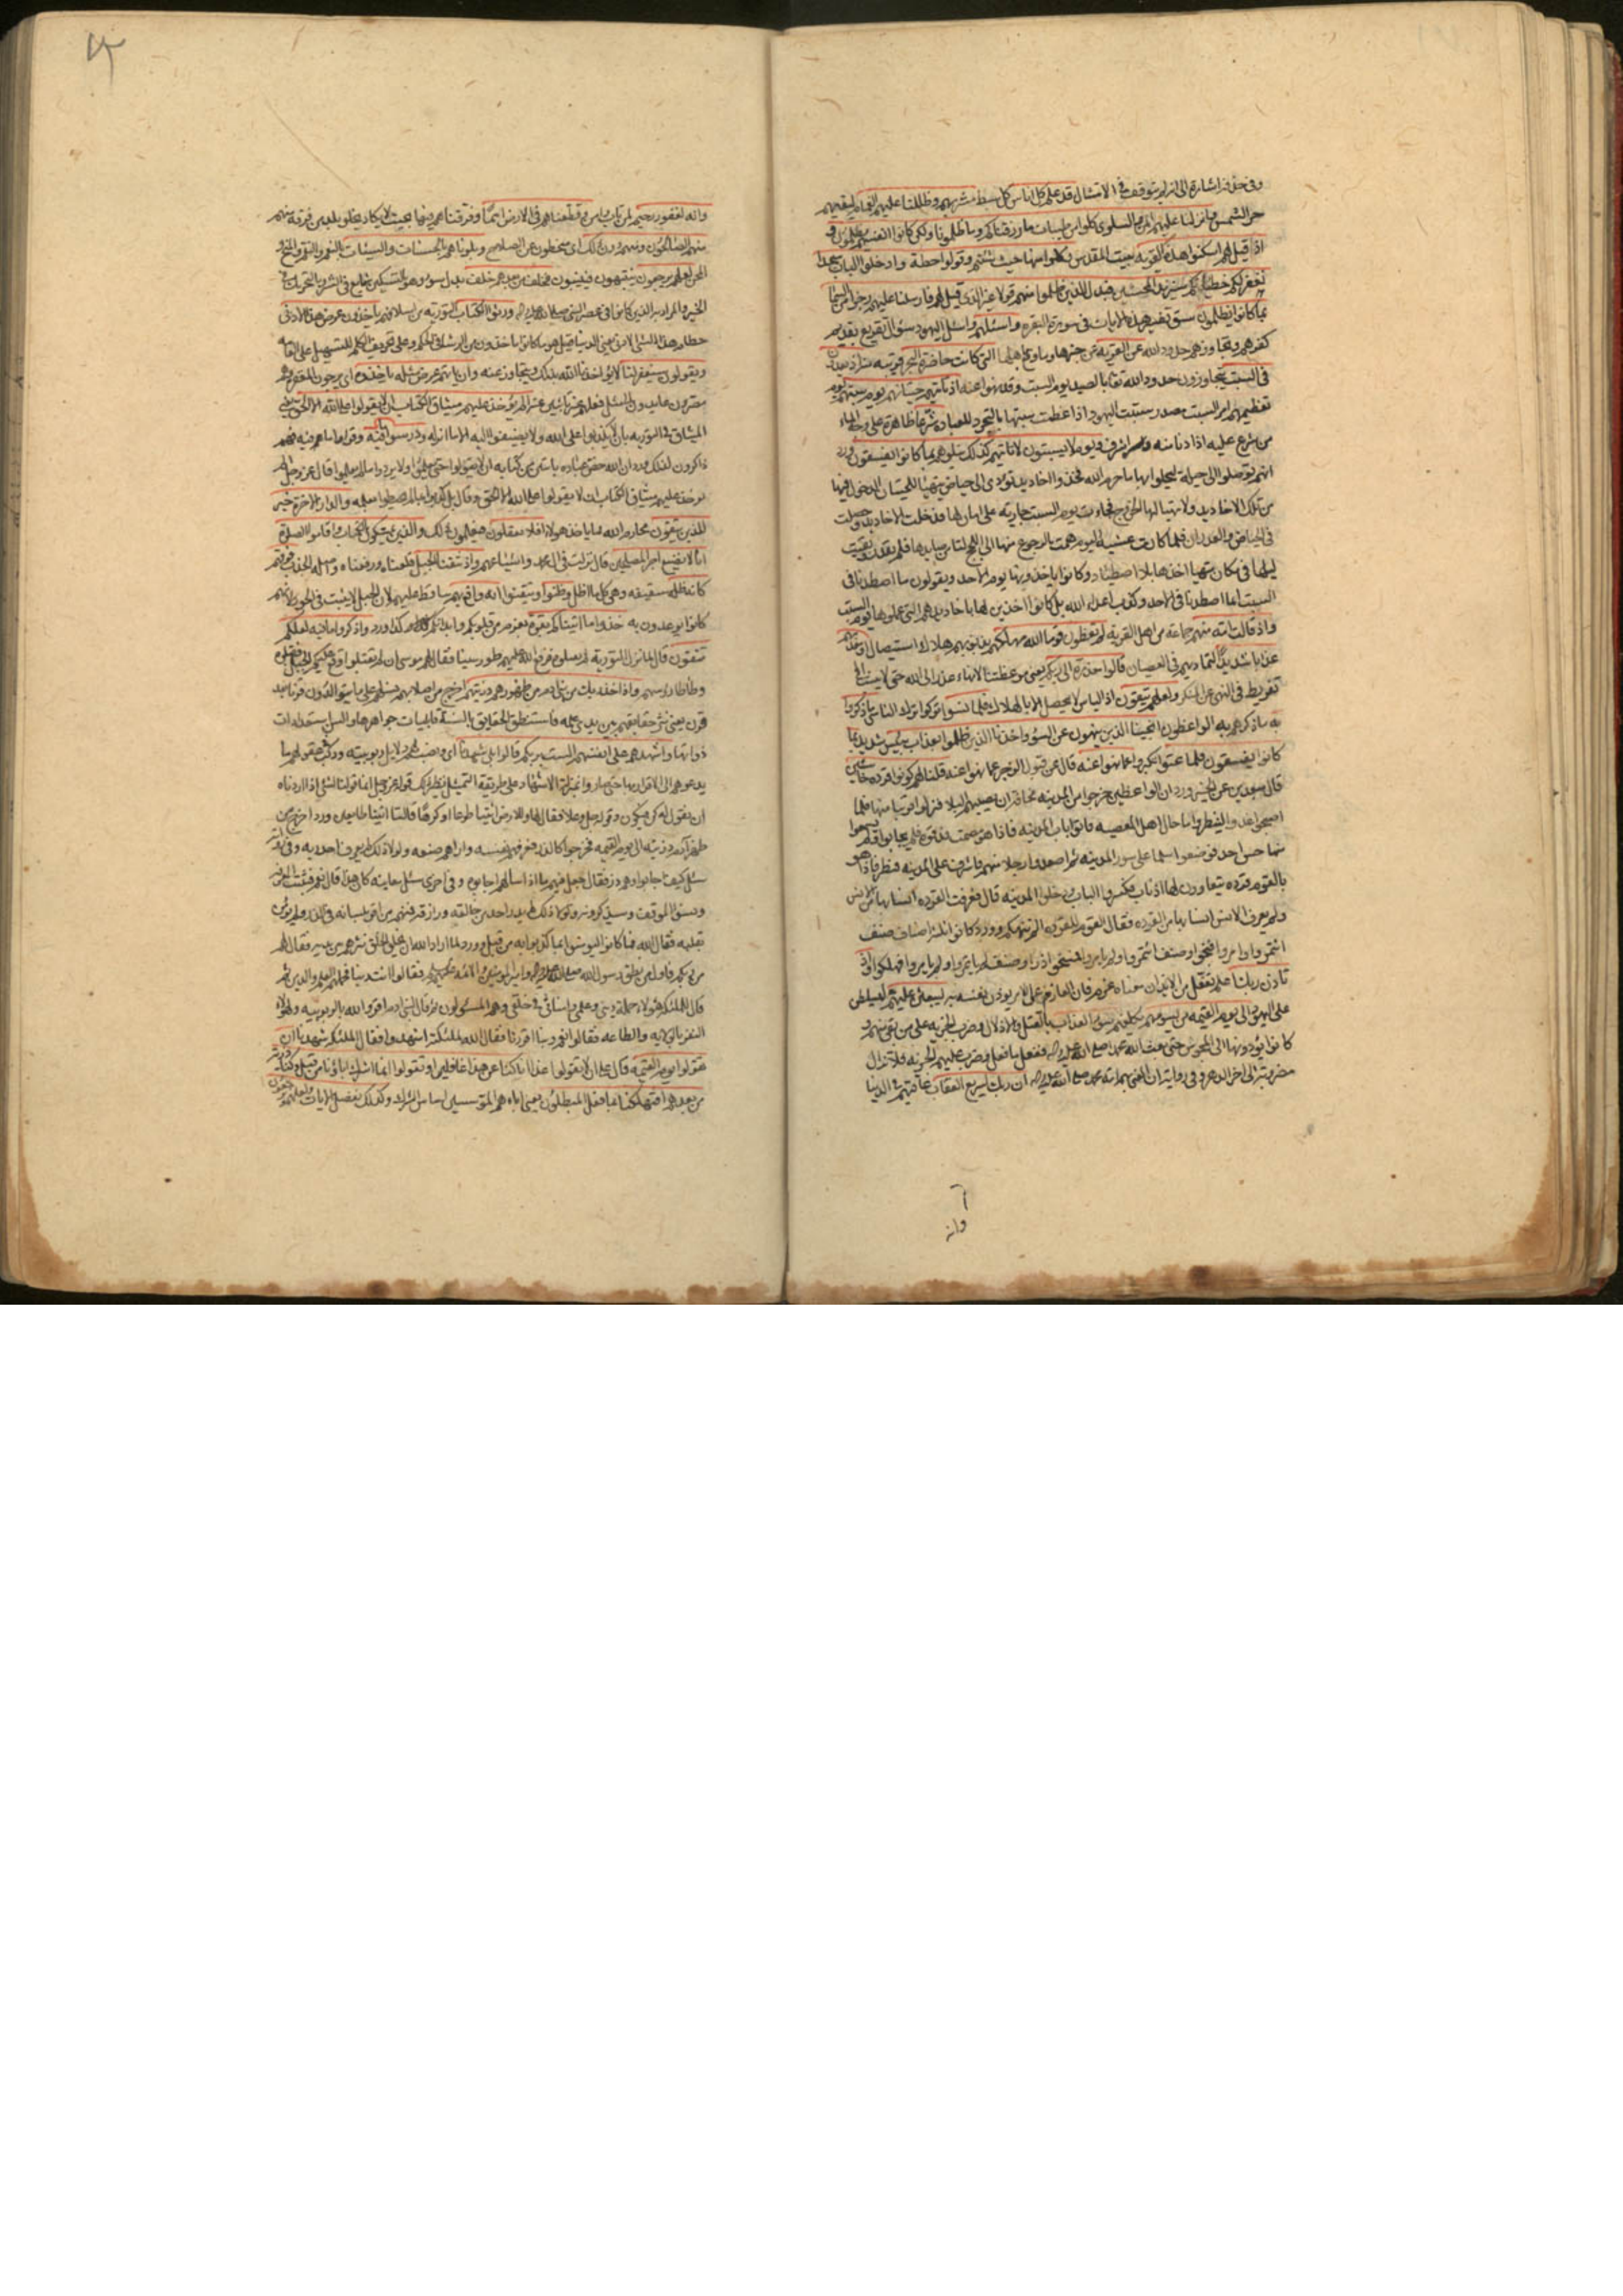 وفي حذفه اشارة الى انه لم يتوقف في الامتثال قد علم كل اناس كل سبط مشربهم وظللنا عليهم الغمام ليقيهم
حر الشمس وانزلنا عليهم المن والسلوى كلوا من طيبات ما رزقناكم وما ظلمونا ولكن كانوا انفسهم يظلمون و
اذ قيل لهم اسكنوا هذه القرية بيت المقدس وكلوا منها حيث شئتم وقولوا حطة وادخلوا الباب سجدا
نغفر لكم خطيئاتكم سنزيد المحسنين فبدل الذين ظلموا منهم قولا غير الذي قيل لهم فارسلنا عليهم رجزا من السما
بما كانوا يظلمون سبق تفسير هذه الايات في سورة البقرة واسئلهم واسئل اليهود سؤال تقريع بقديم
كفرهم وتجاوزهم حدود الله عن القرية عن خبرها وما وقع باهلها التي كانت حاضرة البحر قريبة منه اذ يعدون
في السبت يتجاوزون حدود الله تعا بالصيد يوم السبت وقد نهوا عنه اذ تأتيهم حيتانهم يوم سبتهم يوم
تعظيمهم امر السبت مصدر سبتت اليهود اذا عظمت سبتها بالتجرد للعبادة شرعا ظاهرة على وجه الماء
من شرع عليه اذا دنا منه واشرف ويوم لا يسبتون لا تأتيهم كذلك نبلوهم بما كانوا يفسقون ورد
انهم توصلوا الى حيلة ليحلوا بها ما حرم الله فخدوا اخاديد تؤدي الى حياض يتهيأ للحيتان الدخول فيها
من تلك الاخاديد ولا يتهيأ لها الخروج فجاءت يوم السبت جارية على امان لها فدخلت الاخاديد وحصلت
في الحياض والغدران فلما كانت عشية اليوم همت بالرجوع منها الى اللجج لتأمن صايدها فلم تقدر وبقيت
ليلها في مكان يتهيأ اخذها بلا اصطياد وكانوا ياخذونها يوم الاحد ويقولون ما اصطدنا في
السبت انما اصطدنا في الاحد وكذب اعداء الله بل كانوا اخذين لها باخاديدهم التي عملوها يوم السبت
واذ قالت امة منهم جماعة من اهل القرية لم تعظون قوما الله مهلكهم بذنوبهم هلاك استيصال او معذبهم
عذابا شديدا لتماديهم في العصيان قالوا معذرة الى ربكم يعني موعظتنا انهاء عذر الى الله حتى لا ننسب الى
تفريط في النهي عن المنكر ولعلهم يتقون اذ الياس لا يحصل الا بالهلاك فلما نسوا تركوا ترك الناسي ما ذكروا
به ما ذكرهم به الواعظون انجينا الذين ينهون عن السوء واخذنا الذين ظلموا بعذاب بئيس شديد بما
كانوا يفسقون فلما عتوا تكبروا عما نهوا عنه قال عن قبول الزجر عما نهوا عنه قلنا لهم كونوا قردة خاسئين
ورد ان الواعظين خرجوا من المدينة مخافة ان يصيبهم البلاء فنزلوا قريبا منها فلما
اصبحوا غدوا لينظروا ما حال اهل المعصية فاتوا باب المدينة فاذا هو مصمت فدقوه فلم يجابوا ولم يسمعوا
منها حس احد فوضعوا سلما على سور المدينة ثم اصعدوا رجلا منهم فاشرف على المدينة فنظر فاذا هو
بالقوم قردة يتعاوون لها اذناب فكسروا الباب ودخلوا المدينة قال فعرفت القردة انسابها من الانس
ولم يعرف الانس انسابها من القردة فقال القوم للقردة الم ننهكم وورد كانوا ثلثة اصناف صنف
ائتمروا وامروا فنجوا وصنف ائتمروا ولم يامروا فمسخوا ذرا وصنف لم يأتمروا ولم يامروا فهلكوا واذ
تاذن ربك اعلم تفعل من الايذان معناه عزم فان العازم على الامر يؤذن نفسه به ليبعثن عليهم ليسلطن
على اليهود الى يوم القيمة من يسومهم يكلفهم سوء العذاب بالقتل والاذلال وضرب الجزية على من بقي منهم و
كانوا يؤدونها الى المجوس حتى بعث الله محمدا صلى الله عليه واله ففعل ما فعل وضرب عليهم الجزية فلا تزال
مضروبة الى اخر الدهر وفي رواية ان المعني بهم امة محمد صلى الله عليه واله ان ربك لسريع العقاب عاقبهم في الدنيا
وانه
وانه لغفور رحيم لمن تاب وامن وقطعناهم في الارض امما وفرقناهم فيها بحيث لا يكاد يخلو بلد من فرقة منهم
منهم الصالحون ومنهم دون ذلك اي منحطون عن الصلاح وبلوناهم بالحسنات والسيئات بالنعم والنقم والمنح و
المحن لعلهم يرجعون ينتبهون فينيبون فخلف من بعدهم خلف بدل سوء وهو بالتسكين شايع في الشر وبالتحريك في
الخير والمراد به الذين كانوا في عصر النبي صلى الله عليه واله ورثوا الكتاب التورية من اسلافهم ياخذون عرض هذا الادنى
حطام هذا الشيء الادنى يعني الدنيا قيل هو ما كانوا ياخذون من الرشا في الحكم وعلى تحريف الكلم للتسهيل على العامة
ويقولون سيغفر لنا لا يؤاخذنا الله بذلك ويتجاوز عنه وان ياتهم عرض مثله ياخذوه اي يرجون المغفرة وهم
مصرون عايدون الى مثل فعلهم غير تائبين عنه الم يؤخذ عليهم ميثاق الكتاب ان لا يقولوا على الله الا الحق يعني
الميثاق في التورية بان لا يكذبوا على الله ولا يضيفوا اليه الا ما انزله ودرسوا ما فيه وقرأوا ما فيه فهم
ذاكرون لذلك ورد ان الله خص عباده بايتين من كتابه ان لا يقولوا حتى يعلموا ولا يردوا ما لم يعلموا قال عز وجل الم
يؤخذ عليهم ميثاق الكتاب ان لا يقولوا على الله الا الحق وقال بل كذبوا بما لم يحيطوا بعلمه والدار الاخرة خير
للذين يتقون محارم الله مما ياخذ هؤلاء افلا تعقلون فيعلمون ذلك والذين يمسكون بالكتاب واقاموا الصلوة
انا لا نضيع اجر المصلحين قال نزلت في ال محمد واشياعهم واذ نتقنا الجبل قلعناه ورفعناه واصله الجذب فوقهم
كانه ظلة سقيفة وهي كل ما اظل وظنوا وتيقنوا انه واقع بهم ساقط عليهم لان الجبل لا يثبت في الجو ولانهم
كانوا يوعدون به خذوا ما اتيناكم بقوة بعزم من قلوبكم وابدانكم كذا ورد واذكروا ما فيه لعلكم
تتقون قال لما انزل التورية لم يقبلوه فرفع الله عليهم طور سينا فقال لهم موسى ان لم تقبلوا وقع عليكم الجبل فقبلوه
وطأطأوا رؤسهم واذ اخذ ربك من بني ادم من ظهورهم ذريتهم اخرج من اصلابهم نسلهم على ما يتوالدون قرنا بعد
قرن يعني نثر حقايقهم بين يدي علمه فاستنطق الحقايق بالسنة قابليات جواهرها والسن استعدادات
ذواتها واشهدهم على انفسهم الست بربكم قالوا بلى شهدنا اي ونصب لهم دلايل ربوبيته وركب في عقولهم ما
يدعوهم الى الاقرار بها حتى صاروا بمنزلة الاشهاد على طريقة التمثيل نظير ذلك قوله عز وجل انما قولنا لشيء اذا اردناه
ان نقول له كن فيكون وقوله جل وعلا فقال لها وللارض ائتيا طوعا او كرها قالتا اتينا طائعين ورد اخرج من
ظهر ادم ذريته الى يوم القيمة فخرجوا كالذر فعرفهم نفسه واراهم صنعه ولولا ذلك لم يعرف احد ربه
سئل كيف اجابوا وهم ذر فقال جعل فيهم ما اذا سألهم اجابوه وفي اخرى سئل معاينة كان هذا قال نعم فثبتت المعرفة
ونسوا الموقف وسيذكرونه ولولا ذلك لم يدر احد من خالقه ورازقه فمنهم من اقر بلسانه في الذر ولم يؤمن
بقلبه فقال الله فما كانوا ليؤمنوا بما كذبوا به من قبل وورد لما اراد الله ان يخلق الخلق نثرهم بين يديه فقال لهم
من ربكم فاول من نطق رسول الله صلى الله عليه واله وامير المؤمنين والائمة عليهم السلام فقالوا انت ربنا فحملهم العلم والدين ثم
قال للملئكة هؤلاء حملة ديني وعلمي وامنائي في خلقي وهم المسئولون ثم قال لبني ادم اقروا لله بالربوبية ولهؤلاء
النفر بالولاية والطاعة فقالوا نعم ربنا اقررنا فقال الله للملئكة اشهدوا فقال الملئكة شهدنا ان
تقولوا يوم القيمة قال على ان لا يقولوا غدا انا كنا عن هذا غافلين او تقولوا انما اشرك اباؤنا من قبل وكنا ذرية
من بعدهم افتهلكنا بما فعل المبطلون يعني اباءهم المؤسسين اساس الشرك وكذلك نفصل الايات ولعلهم يرجعون